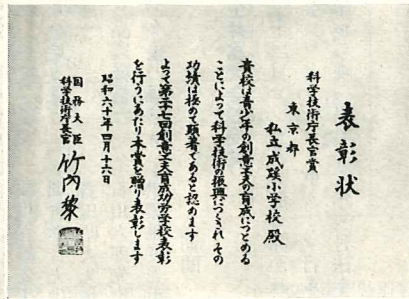 表彰状
科学技術庁長官賞
東京都
私立成蹊小学校殿
貴校は青少年の創意工夫の育成につとめる
ことによって科学技術の振興につくされその
功績は極めて顕著であると認めます
よって第二十七回創意工夫育成功労学校表彰
を行うにあたり本賞を贈り表彰します
昭和六十年四月十六日
国務大臣
科学技術庁長官 竹内黎一